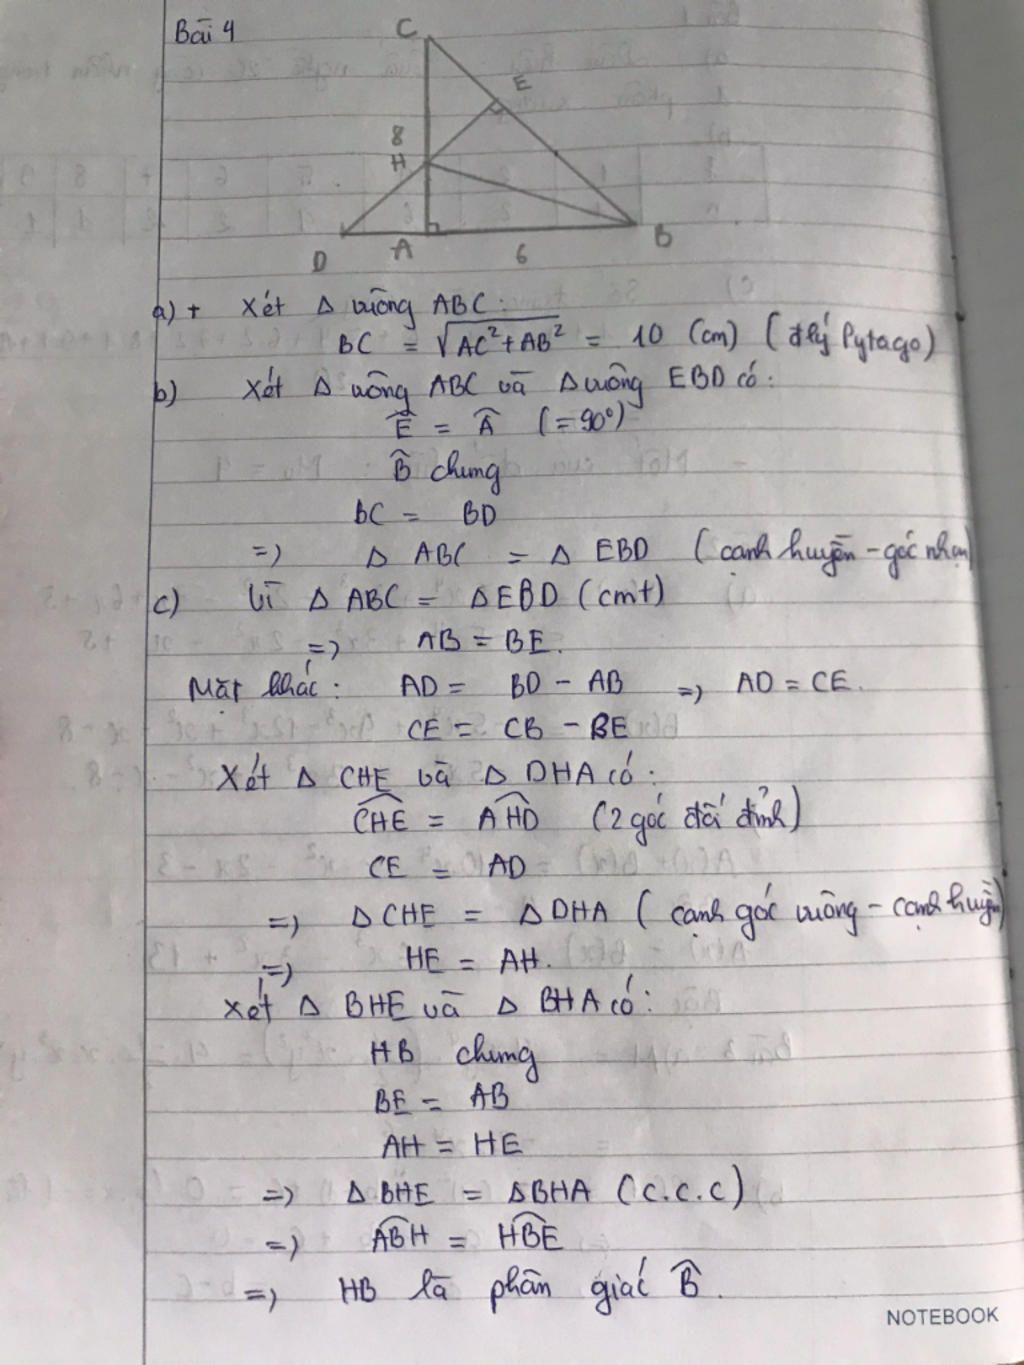 Bài 4
C
E
8
H
D A 6 B
a) + Xét Δ vuông ABC:
BC = √AC²+AB² = 10 (cm) (đlý Pytago)
b) Xét Δ vuông ABC và Δ vuông EBD có:
Ê = Â (=90°)
B̂ chung
BC = BD
=> Δ ABC = Δ EBD (cạnh huyền - góc nhọn)
c) Vì Δ ABC = Δ EBD (cmt)
=> AB = BE.
Mặt khác: AD = BD - AB => AD = CE.
CE = CB - BE
Xét Δ CHE và Δ DHA có:
CHE = AHD (2 góc đối đỉnh)
CE = AD
=> Δ CHE = Δ DHA (cạnh góc vuông - cạnh huyền)
=> HE = AH.
Xét Δ BHE và Δ BHA có:
HB chung
BE = AB
AH = HE
=> Δ BHE = Δ BHA (c.c.c)
=> ABH = HBE
=> HB là phân giác B̂.
NOTEBOOK